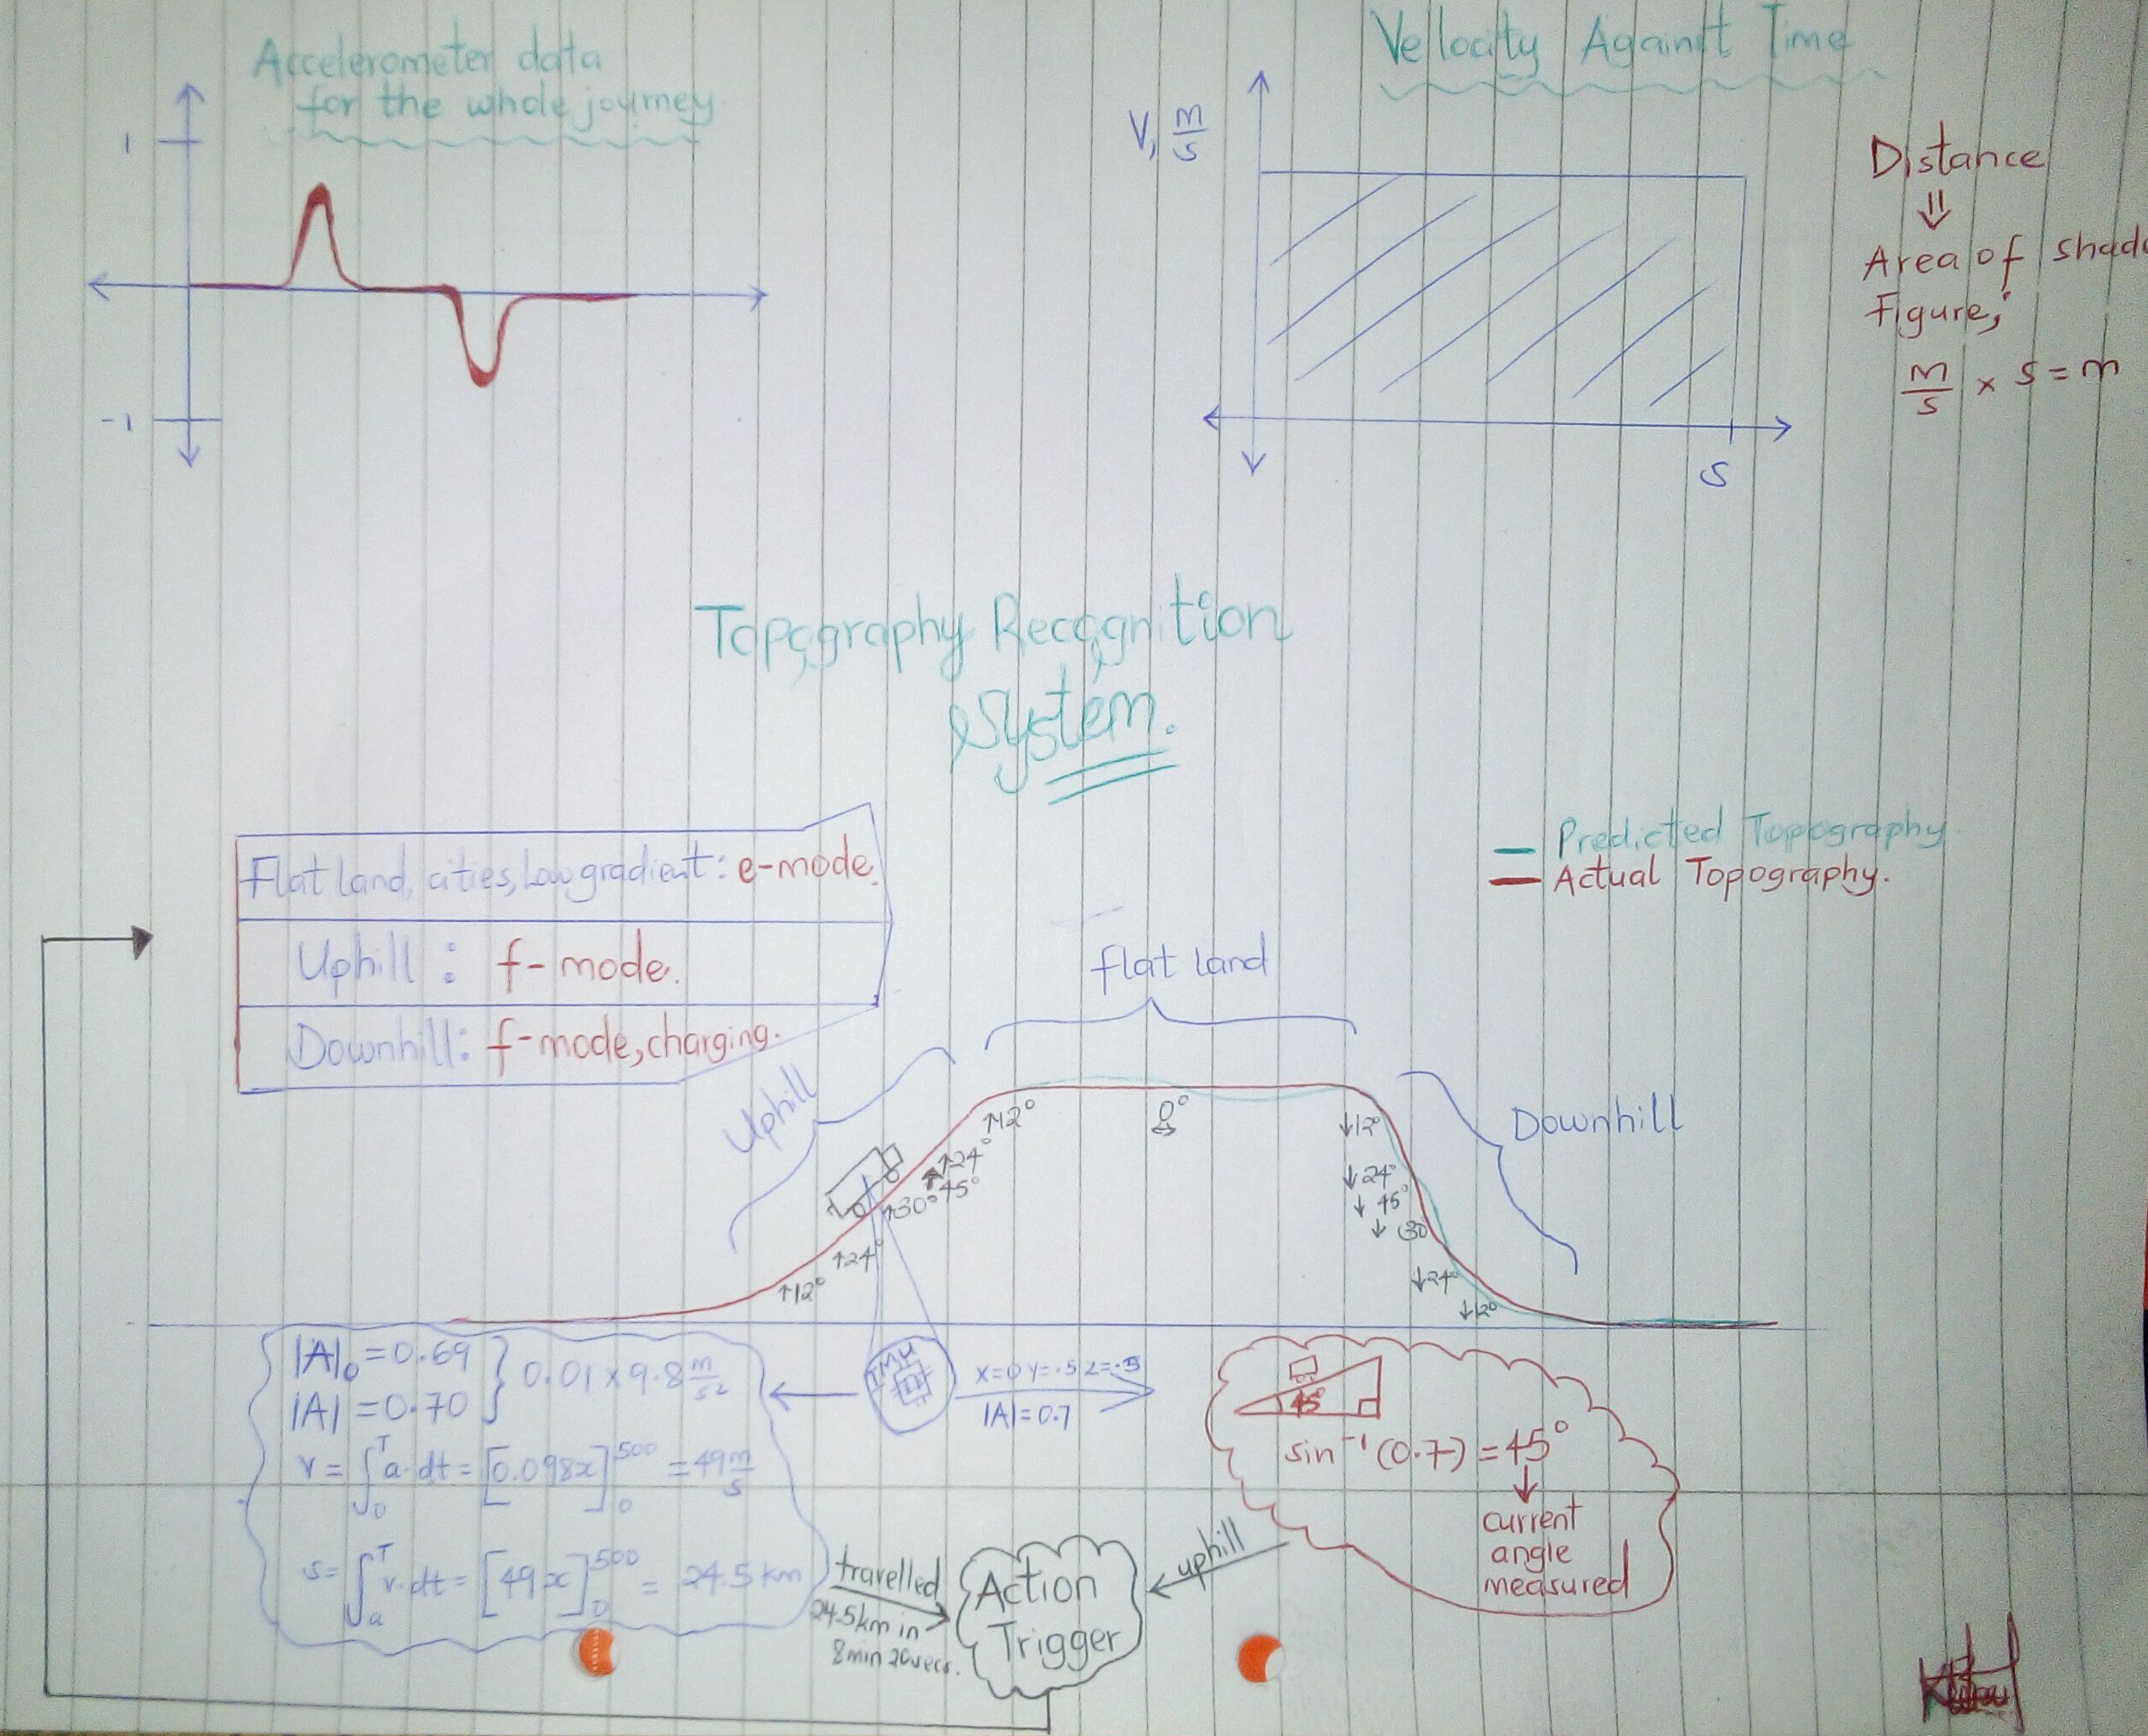 Accelerometer data
for the whole journey
1
-1
Vellocity Against Time
V, m/s
S
Distance
⇓
Area of shad
Figure;
m/s × s = m
Topography Recognition
System.
Flat land, cities, Low gradient: e-mode.
Uphill : f-mode.
Downhill: f-mode, charging.
Predicted Topography.
Actual Topography.
flat land
Uphill
Downhill
↑12°
↑24°
↑30°
↑45°
↑24°
↑12°
0°
↓12°
↓24°
↓ 45°
↓ 30
↓24°
↓12°
|A|₀ = 0.69
|A| = 0.70
} 0.01 x 9.8 m/s²
v = ∫₀ᵀ a·dt = [0.098x]₀⁵⁰⁰ = 49 m/s
s = ∫ₐᵀ v·dt = [49x]₀⁵⁰⁰ = 24.5 km
IMU
X=0 Y=.5 Z=.5
|A| = 0.7
45°
sin⁻¹(0.7) = 45°
current
angle
measured
uphill
travelled
24.5km in
8min 20secs.
Action
Trigger